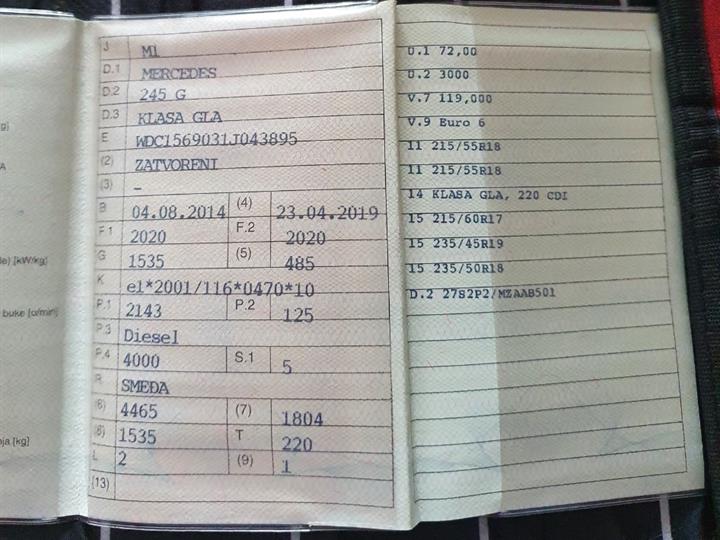 g]
A
le) [kW/kg]
buke [o/min]
ja [kg]
J M1
D.1 MERCEDES
D.2 245 G
D.3 KLASA GLA
E WDC1569031J043895
(2) ZATVORENI
(3) –
B 04.08.2014 (4) 23.04.2019
F.1 2020 F.2 2020
G 1535 (5) 485
K e1*2001/116*0470*10
P.1 2143 P.2 125
P.3 Diesel
P.4 4000 S.1 5
R SMEĐA
(6) 4465 (7) 1804
(8) 1535 T 220
L 2 (9) 1
(13)
U.1 72,00
U.2 3000
V.7 119,000
V.9 Euro 6
11 215/55R18
11 215/55R18
14 KLASA GLA, 220 CDI
15 215/60R17
15 235/45R19
15 235/50R18
D.2 27S2P2/MZAAB501